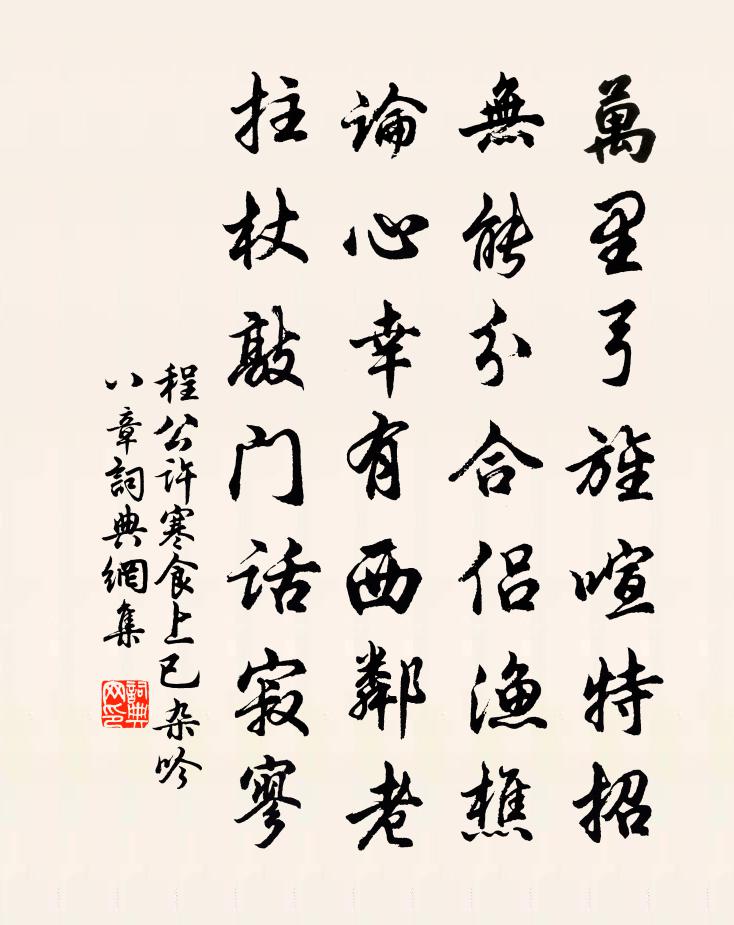 萬里弓旌喧特招
無能分合侣漁樵
論心幸有西鄰老
拄杖敲門話寂寥
程公許寒食上巳杂吟
八章詞典網集
詞典
网印